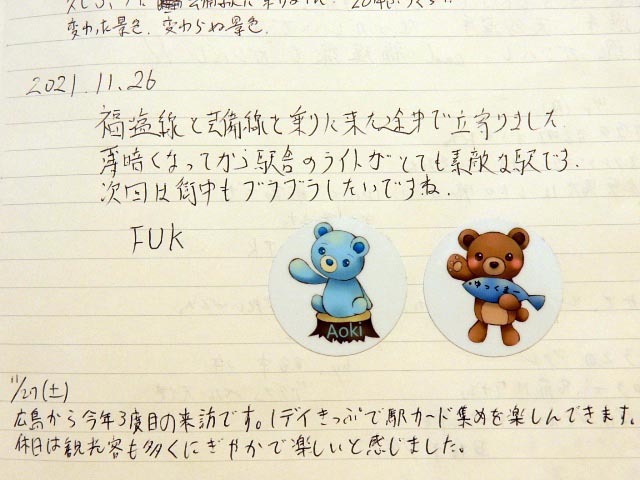 変わった景色、変わらぬ景色。
2021.11.26
福塩線と芸備線を乗りに来た途中で立寄りました.
薄暗くなってから駅舎のライトがとても素敵な駅です.
次回は街中もブラブラしたいですね.
FUK
Aoki
ゆっくまー
11/27(土)
広島から今年3度目の来訪です。1デイきっぷで駅カード集めを楽しんできます。
休日は観光客も多くにぎやかで楽しいと感じました。